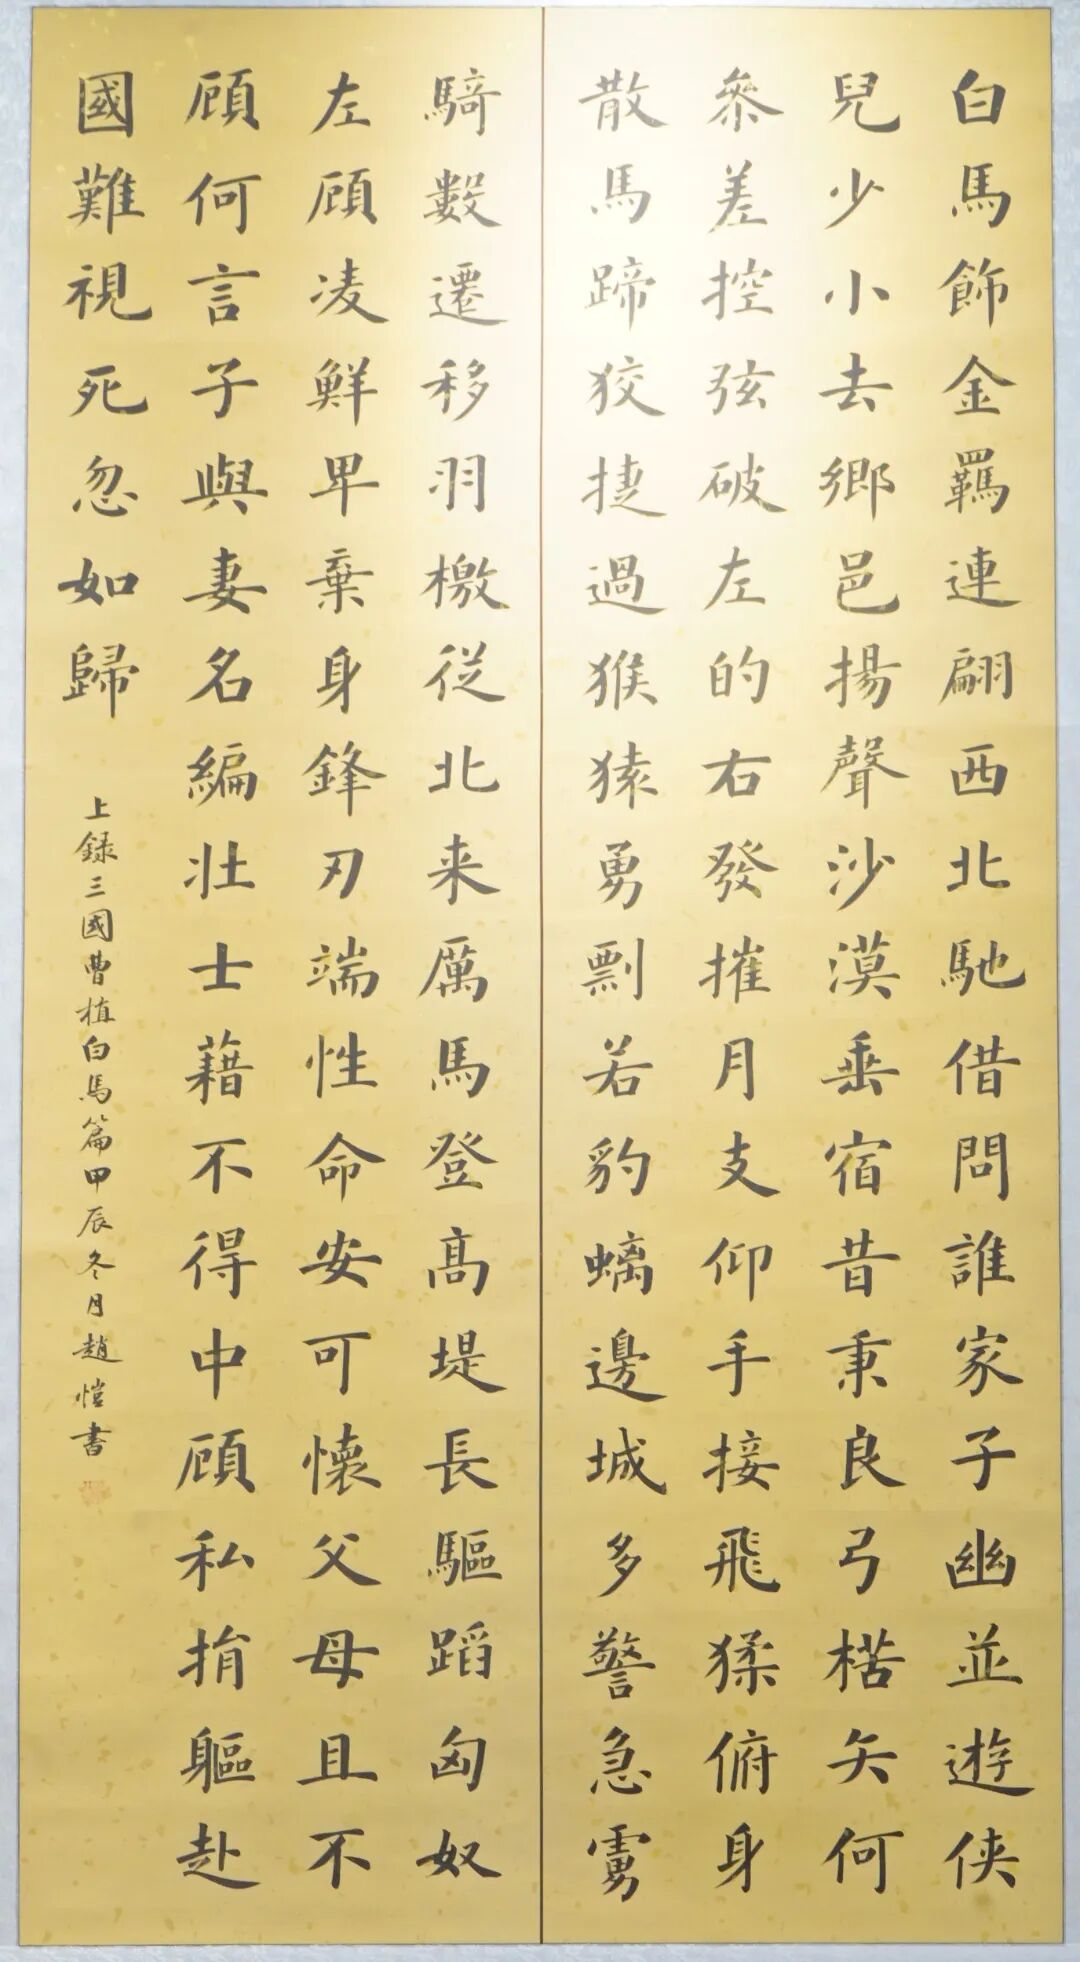 白馬飾金羈連翩西北馳借問誰家子幽並遊俠
兒少小去鄉邑揚聲沙漠垂宿昔秉良弓楛矢何
參差控弦破左的右發摧月支仰手接飛猱俯身
散馬蹄狡捷過猴猿勇剽若豹螭邊城多警急虜
騎數遷移羽檄從北来厲馬登高堤長驅蹈匈奴
左顧凌鮮卑棄身鋒刃端性命安可懷父母且不
顧何言子與妻名編壯士藉不得中顧私捐軀赴
國難視死忽如歸
上録三國曹植白馬篇甲辰冬月趙愷書